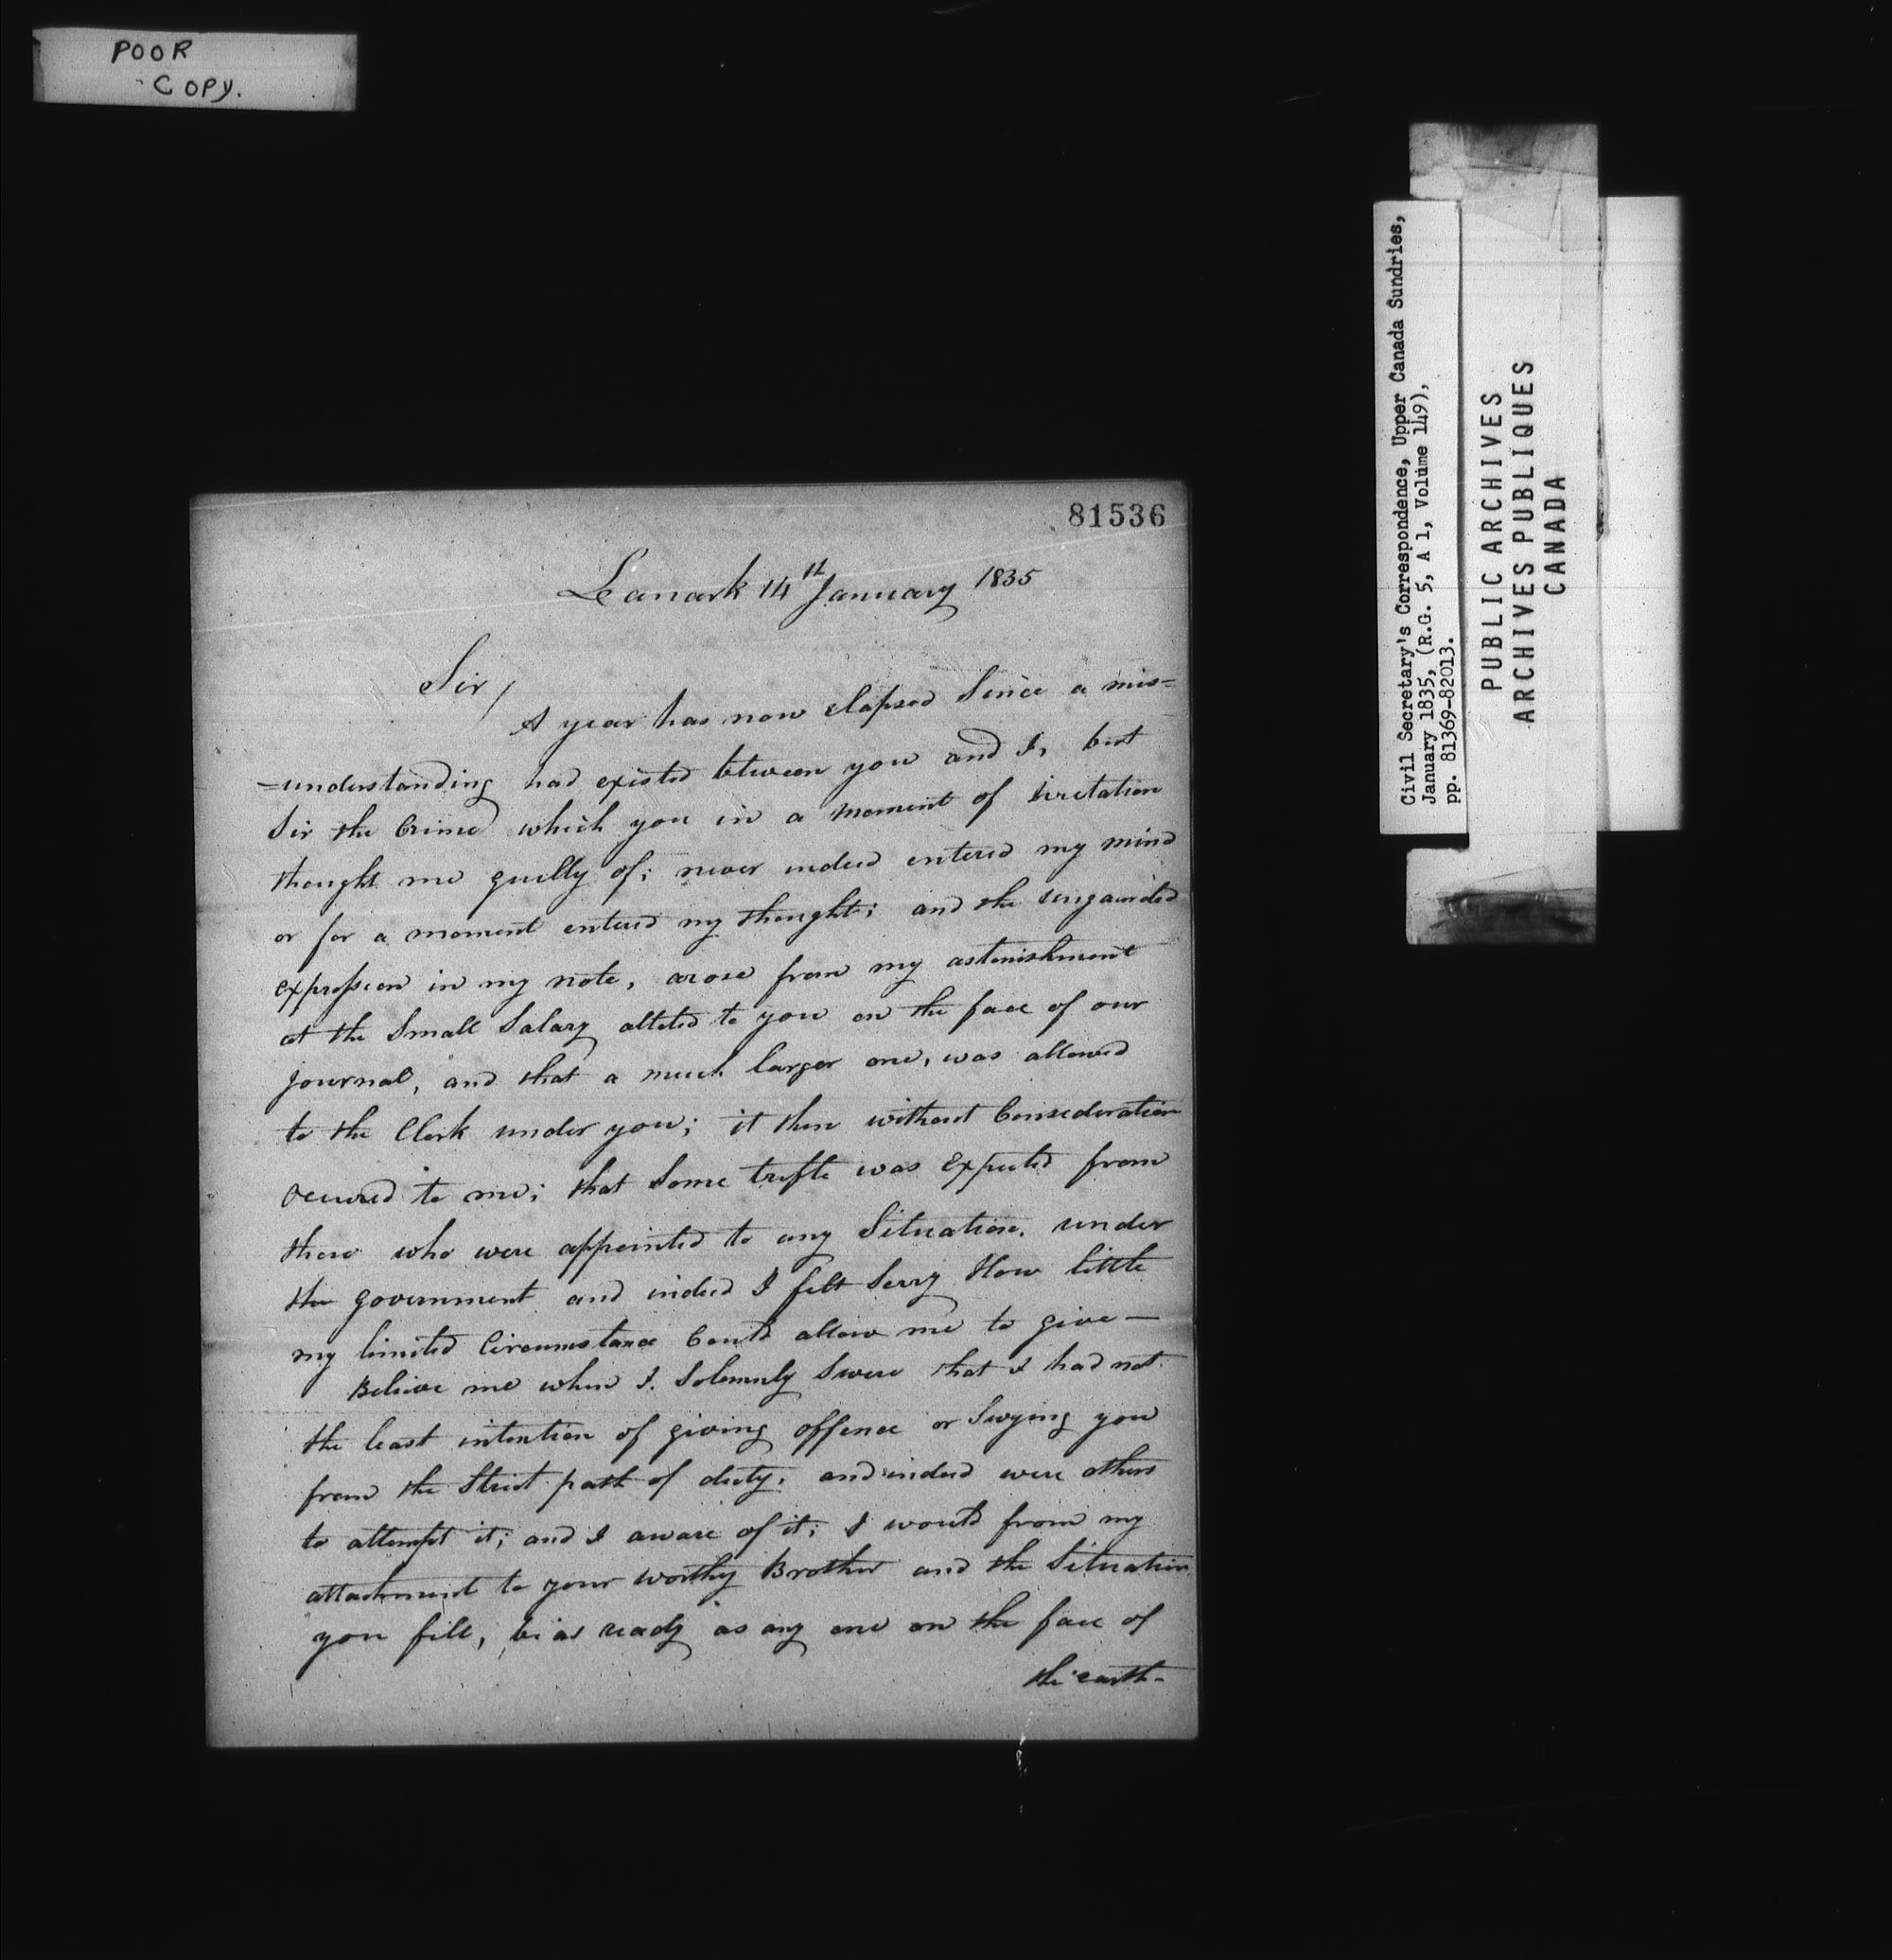 POOR
COPY.
81536
Lanark 14th January 1835
Sir/
A year has now elapsed Since a mis=
=understanding had existed between you and I, but
Sir the Crime which you in a moment of irretation
thought me guilty of; never indeed entered my mind
or for a moment entered my thought; and the ungaurded
expression in my note, arose from my astonishment
at the Small Salary alloted to you on the face of our
journal, and that a much larger one, was allowed
to the Clerk under you; it then without Consideration
occured to me; that Some trifle was Expected from
those who were appointed to any Situation, under
the government and indeed I felt Sorry How little
my limited Circumstance Could allow me to give —
Believe me when I Solemnly Swere that I had not
the least intention of giving offence or Swying you
from the Strict path of duty, and indeed were others
to attempt it; and I aware of it; I would from my
attachment to your worthy Brother and the Situation
you fill, be as ready as any one on the face of
the earth-
Civil Secretary's Correspondence, Upper Canada Sundries,
January 1835, (R.G. 5, A 1, Volume 149),
pp. 81369-82013.
PUBLIC ARCHIVES
ARCHIVES PUBLIQUES
CANADA